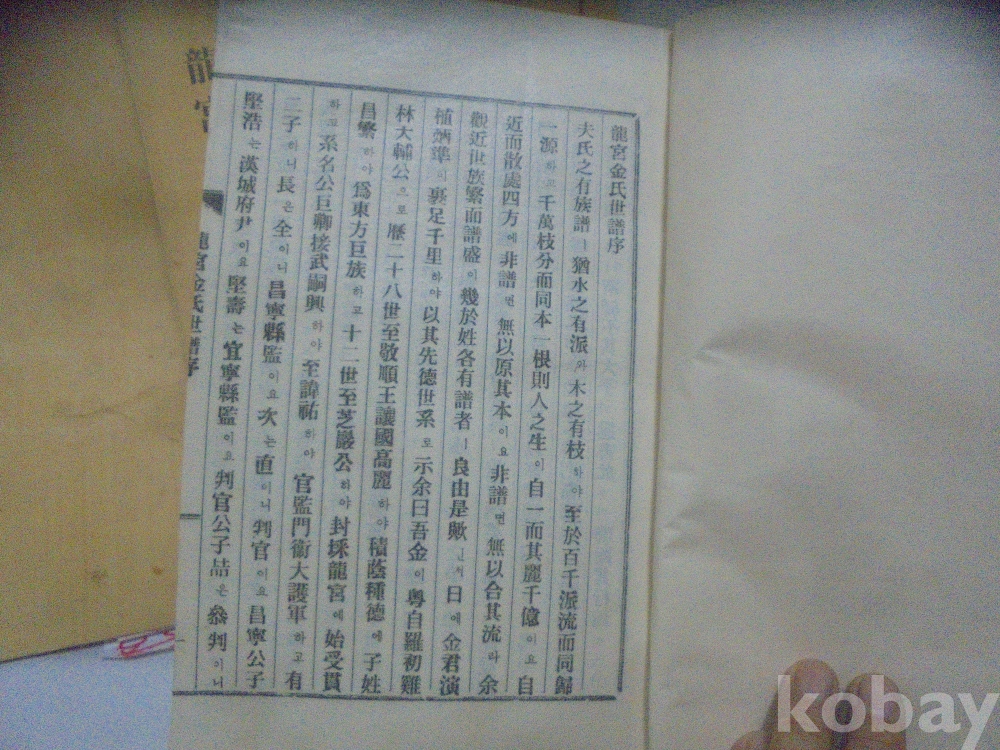 龍宮金氏世譜序
夫氏之有族譜ㅣ猶水之有派와木之有枝하야至於百千派流而同歸
一源하고千萬枝分而同本一根則人之生이自一而其麗千億이요自
近而散處四方에非譜면無以原其本이요非譜면無以合其流라余
觀近世族繁而譜盛이幾於姓各有譜者ㅣ良由是歟인저日에金君演
植炳準이裹足千里하야以其先德世系로示余曰吾金이粤自羅初雞
林大輔公으로歷二十八世至敬順王讓國高麗하야積蔭種德에子姓
昌繁하야爲東方巨族하고十二世至芝巖公하야封採龍宮에始受貫
하고系名公巨卿接武嗣興하야至諱祐하야官監門衛大護軍하고有
二子하니長은全이니昌寧縣監이요次는直이니判官이요昌寧公子
堅浩는漢城府尹이요堅壽는宜寧縣監이요判官公子喆은參判이니
龍宮金氏世譜序
一
龍宮
kobay